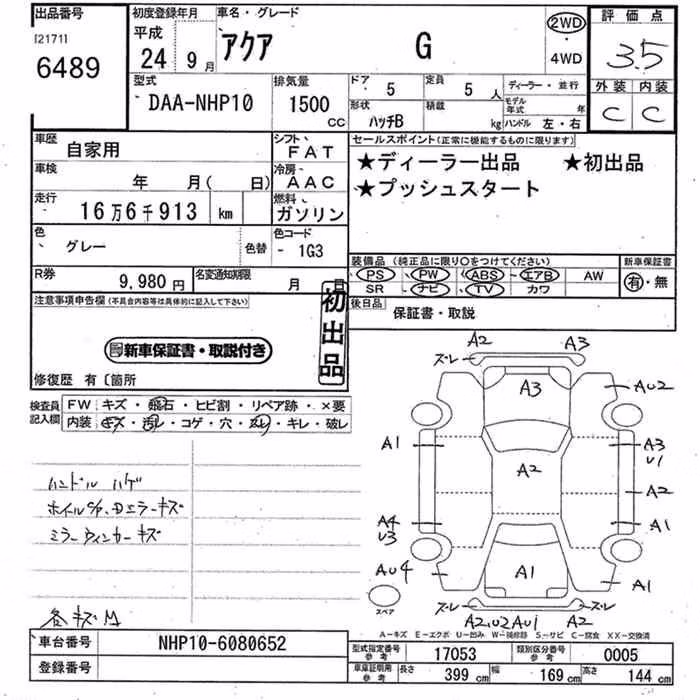 出品番号 初度登録年月 車名・グレード 評価点
[2171] 平成 2WD
6489 24年 9月 アクア G ・ 3.5
4WD
型式 排気量 ドア ・ 5 定員 5 人 ディーラー ・ 並行 外装 内装
DAA-NHP10 1500 cc 形状 ハッチB 積載 kg モデル年式 年 C C
ハンドル 左・右
車歴 自家用 シフト、 FAT セールスポイント(正常に機能するものに限ります)
車検 年 月( 日) 冷房、 AAC ★ディーラー出品 ★初出品
走行 16万6千913 km 燃料 ガソリン ★プッシュスタート
色 、 グレー 色替 色コード - 1G3
装備品 (純正品に限り○をつけてください) 新車保証書
R券 9,980円 名変通知期限 月 日 PS 、 PW ABS エアB AW 有・無
SR ナビ TV カワ
注意事項申告欄(不具合内容等は具体的に記入して下さい) 初出品 後日品 保証書・取説
新車保証書・取説付き
修復歴 有 〔箇所
検査員記入欄 FW キズ ・ 飛石 ・ ヒビ割 ・ リペア跡 ・ ×要
内装 キズ ・ 汚レ ・ コゲ ・ 穴 ・ スレ ・ キレ ・ 破レ
ハンドル ハゲ
ホイルC/P、Dミラーキズ
ミラーウィンカーキズ
各キズ
A2 A3
ズレ
A3 AU2
A1 A3
U1
A2 A2
A4 A1
U3
AU4 A1 A1
スペア ズレ ズレ
A2 U2 AU1 A2
A－キズ E－エクボ U－凹み W－補修跡 S－サビ C－腐食 XX－交換済
車台番号 NHP10-6080652 型式指定番号 参考 17053 類別区分番号 参考 0005
登録番号 車庫証明用 参考 長さ 399 cm 幅 169 cm 高さ 144 cm